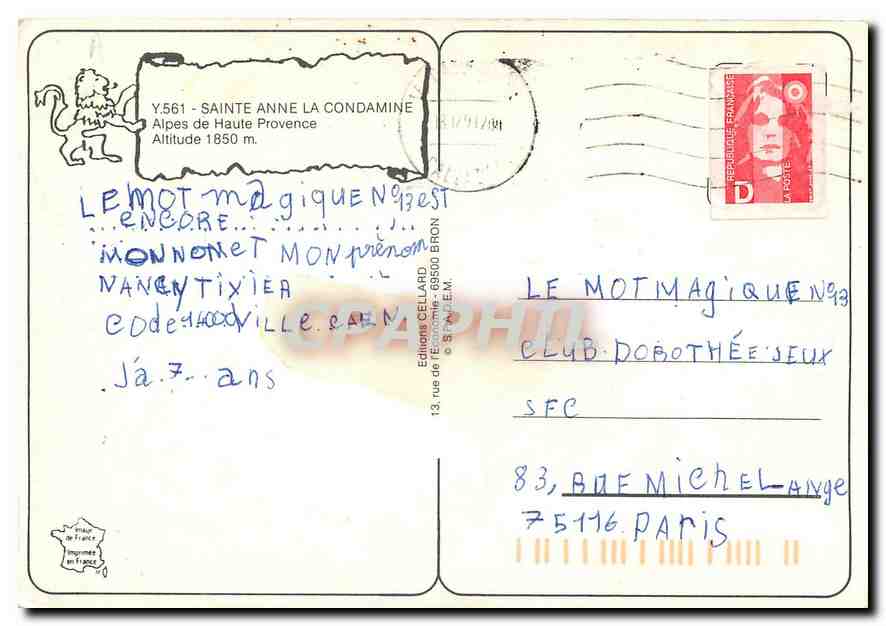 Y.561 - SAINTE ANNE LA CONDAMINE
Alpes de Haute Provence
Altitude 1850 m.
LE MOT magiQUE N°13 EST
...ENCORE...
MON NOM ET MON prènom
NANCY TIXIER
CODE 14000 VILLE. CAEN
J'a. 7... ans
Editions CELLARD
13, rue de l'Economie - 69500 BRON
© S.P.A.D.E.M.
Image
de France
Imprimée
en France
REPUBLIQUE FRANÇAISE
D
LA POSTE
LE MOT MAgiQUE N°13
CLUB. DOROTHÉE. JEUX
SFC
83, RUE MICHEL-ANge
75116. PARis
CPAPHIL